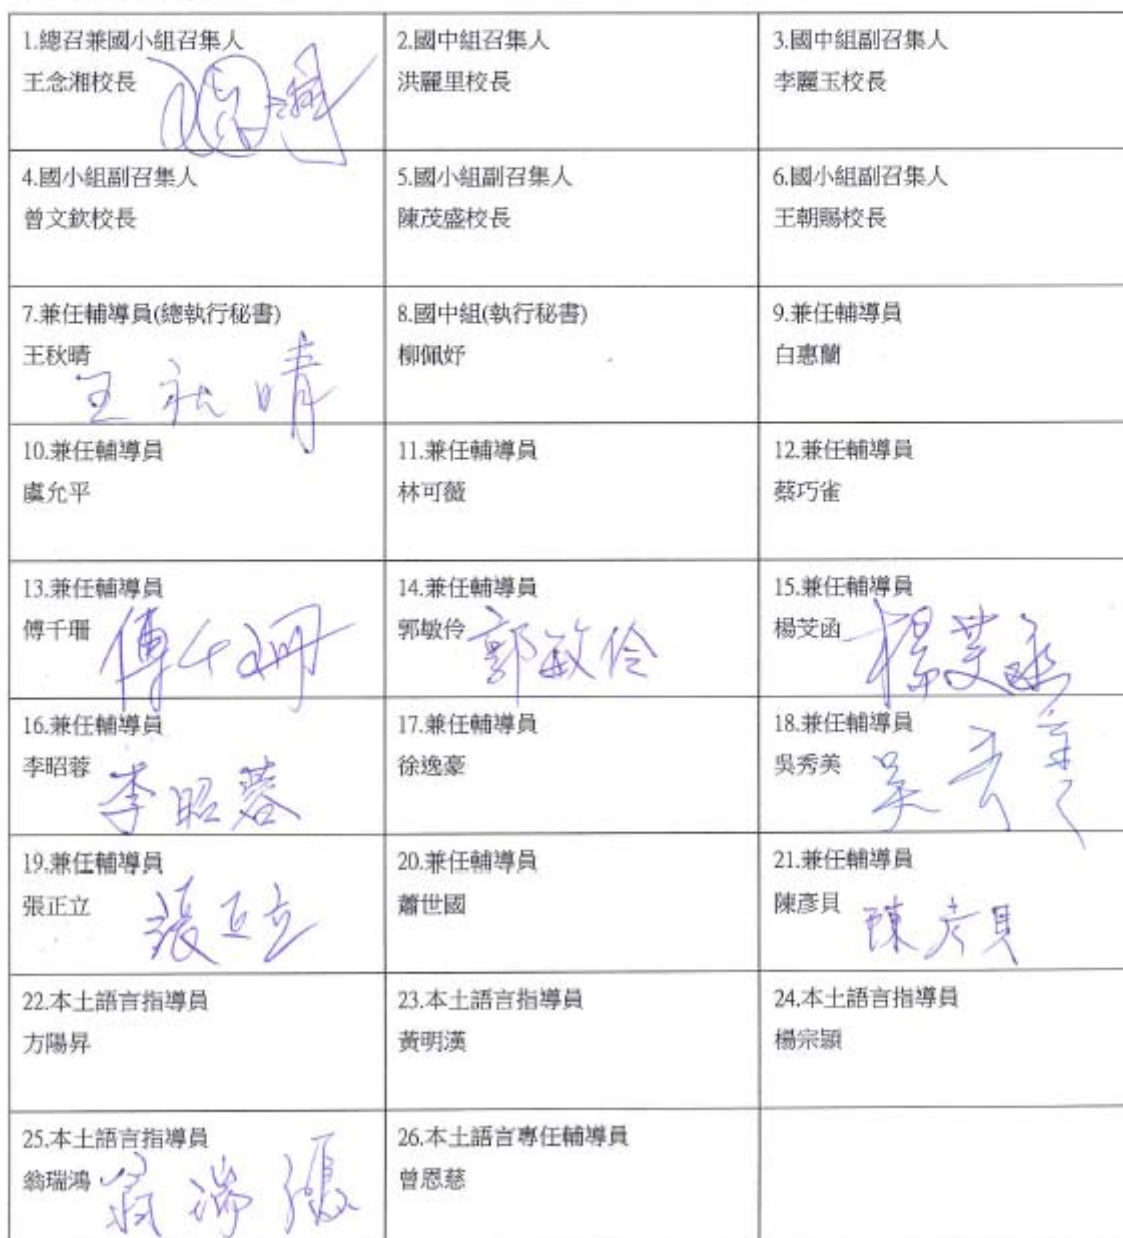 1.總召兼國小組召集人
王念湘校長
2.國中組召集人
洪麗里校長
3.國中組副召集人
李麗玉校長
4.國小組副召集人
曾文欽校長
5.國小組副召集人
陳茂盛校長
6.國小組副召集人
王朝賜校長
7.兼任輔導員(總執行秘書)
王秋晴
王秋晴
8.國中組(執行秘書)
柳佩妤
9.兼任輔導員
白惠蘭
10.兼任輔導員
虞允平
11.兼任輔導員
林可薇
12.兼任輔導員
蔡巧雀
13.兼任輔導員
傅千珊
傅千珊
14.兼任輔導員
郭敏伶
郭敏伶
15.兼任輔導員
楊芠函
楊芠函
16.兼任輔導員
李昭蓉
李昭蓉
17.兼任輔導員
徐逸豪
18.兼任輔導員
吳秀美
吳秀美
19.兼任輔導員
張正立
張正立
20.兼任輔導員
蕭世國
21.兼任輔導員
陳彥貝
陳彥貝
22.本土語言指導員
方陽昇
23.本土語言指導員
黃明漢
24.本土語言指導員
楊宗顯
25.本土語言指導員
翁瑞鴻
26.本土語言專任輔導員
曾恩慈